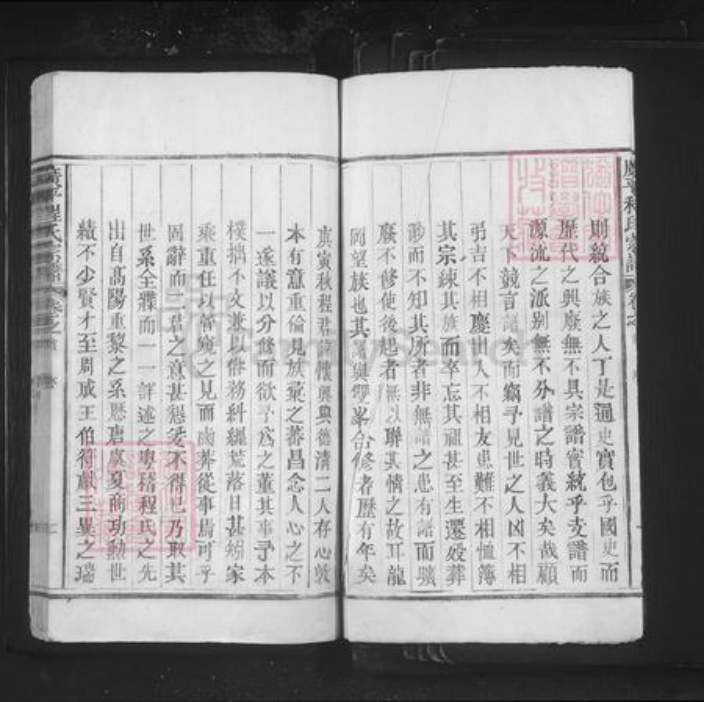 廣平程氏宗譜 卷之首
則統合族之人丁是通史實包乎國史而
歷代之興廢無不具宗譜實統乎支譜而
源流之派別無不分譜之時義大矣哉顧
天下競言譜矣而竊予見世之人凶不相
弔吉不相慶出入不相友患難不相恤簿
其宗練其族而卒忘其祖甚至生遷歿葬
渺而不知其所者非無譜之患有譜而曠
廢不修使後起者無以聯其情之故耳龍
岡望族也其譜與雙峯合修者歷有年矣
庚寅秋程君 懷興與德清二人存心敦
本有意重倫見族彙之蕃昌念人心之不
一遂議以分修而欲予為之董其事予本
樸拙不文兼以俗務糾纏荒落日甚矧家
乘重任以管窺之見而鹵莽從事焉可乎
固辭而二君之意甚懇爰不得已乃取其
世系全牒而一一評述之粵稽程氏之先
出自髙陽重黎之系歷唐虞夏商功勲世
績不少賢才至周成王伯符獻三異之瑞
廣平程氏宗譜 卷之首